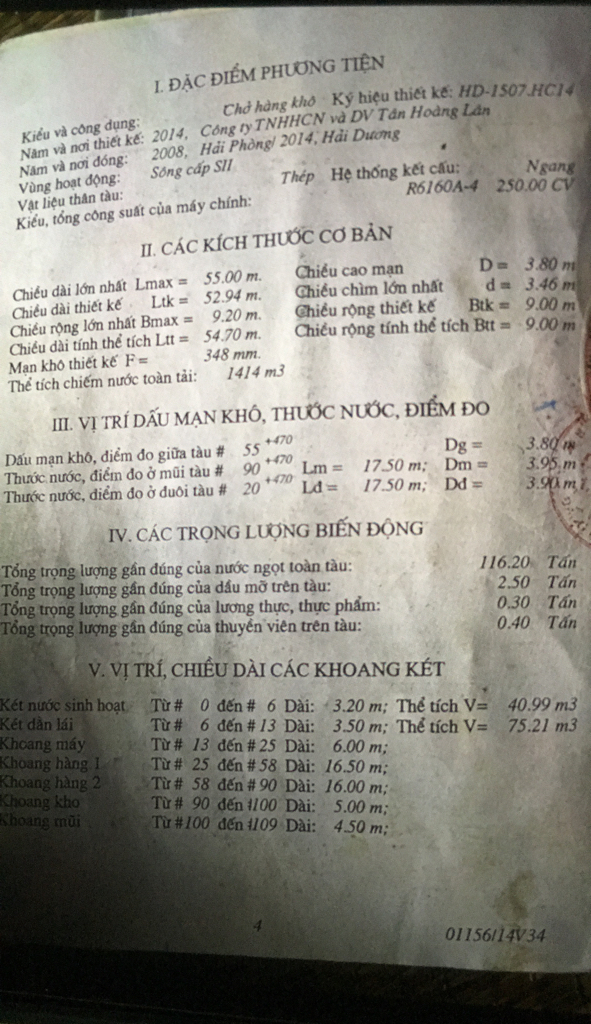 I. ĐẶC ĐIỂM PHƯƠNG TIỆN
Kiểu và công dụng: Chở hàng khô Ký hiệu thiết kế: HD-1507.HC14
Năm và nơi thiết kế: 2014, Công ty TNHHCN và DV Tân Hoàng Lân
Năm và nơi đóng: 2008, Hải Phòng/ 2014, Hải Dương
Vùng hoạt động: Sông cấp SII
Vật liệu thân tàu: Thép Hệ thống kết cấu: Ngang
Kiểu, tổng công suất của máy chính: R6160A-4 250.00 CV
II. CÁC KÍCH THƯỚC CƠ BẢN
Chiều dài lớn nhất Lmax = 55.00 m. Chiều cao mạn D = 3.80 m
Chiều dài thiết kế Ltk = 52.94 m. Chiều chìm lớn nhất d = 3.46 m
Chiều rộng lớn nhất Bmax = 9.20 m. Chiều rộng thiết kế Btk = 9.00 m
Chiều dài tính thể tích Ltt = 54.70 m. Chiều rộng tính thể tích Btt = 9.00 m
Mạn khô thiết kế F = 348 mm.
Thể tích chiếm nước toàn tải: 1414 m3
III. VỊ TRÍ DẤU MẠN KHÔ, THƯỚC NƯỚC, ĐIỂM ĐO
Dấu mạn khô, điểm đo giữa tàu # 55 +470 Dg = 3.80 m
Thước nước, điểm đo ở mũi tàu # 90 +470 Lm = 17.50 m; Dm = 3.95 m
Thước nước, điểm đo ở đuôi tàu # 20 +470 Ld = 17.50 m; Dd = 3.90 m
IV. CÁC TRỌNG LƯỢNG BIẾN ĐỘNG
Tổng trọng lượng gần đúng của nước ngọt toàn tàu: 116.20 Tấn
Tổng trọng lượng gần đúng của dầu mỡ trên tàu: 2.50 Tấn
Tổng trọng lượng gần đúng của lương thực, thực phẩm: 0.30 Tấn
Tổng trọng lượng gần đúng của thuyền viên trên tàu: 0.40 Tấn
V. VỊ TRÍ, CHIỀU DÀI CÁC KHOANG KÉT
Két nước sinh hoạt Từ # 0 đến # 6 Dài: 3.20 m; Thể tích V= 40.99 m3
Két dằn lái Từ # 6 đến # 13 Dài: 3.50 m; Thể tích V= 75.21 m3
Khoang máy Từ # 13 đến # 25 Dài: 6.00 m;
Khoang hàng 1 Từ # 25 đến # 58 Dài: 16.50 m;
Khoang hàng 2 Từ # 58 đến # 90 Dài: 16.00 m;
Khoang kho Từ # 90 đến #100 Dài: 5.00 m;
Khoang mũi Từ #100 đến #109 Dài: 4.50 m;
4
01156/14V34